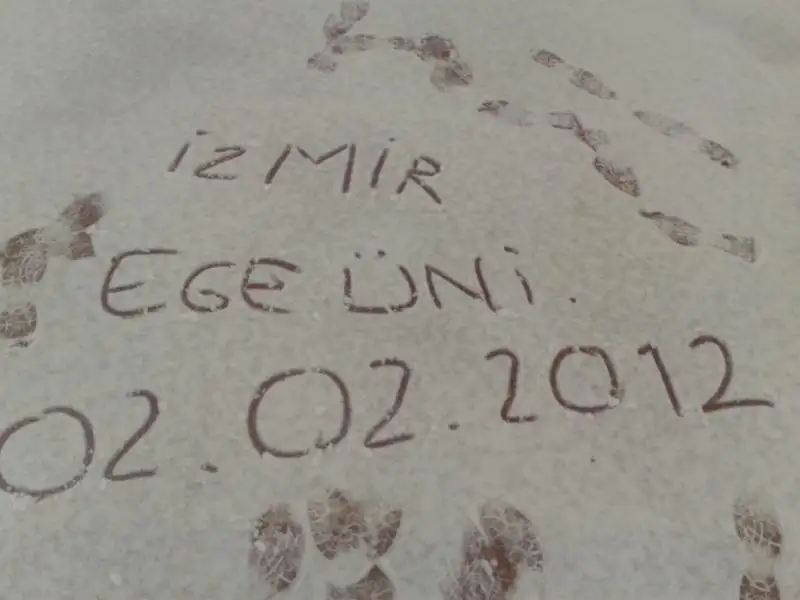 İZMİR
EGE ÜNİ.
02.02.2012